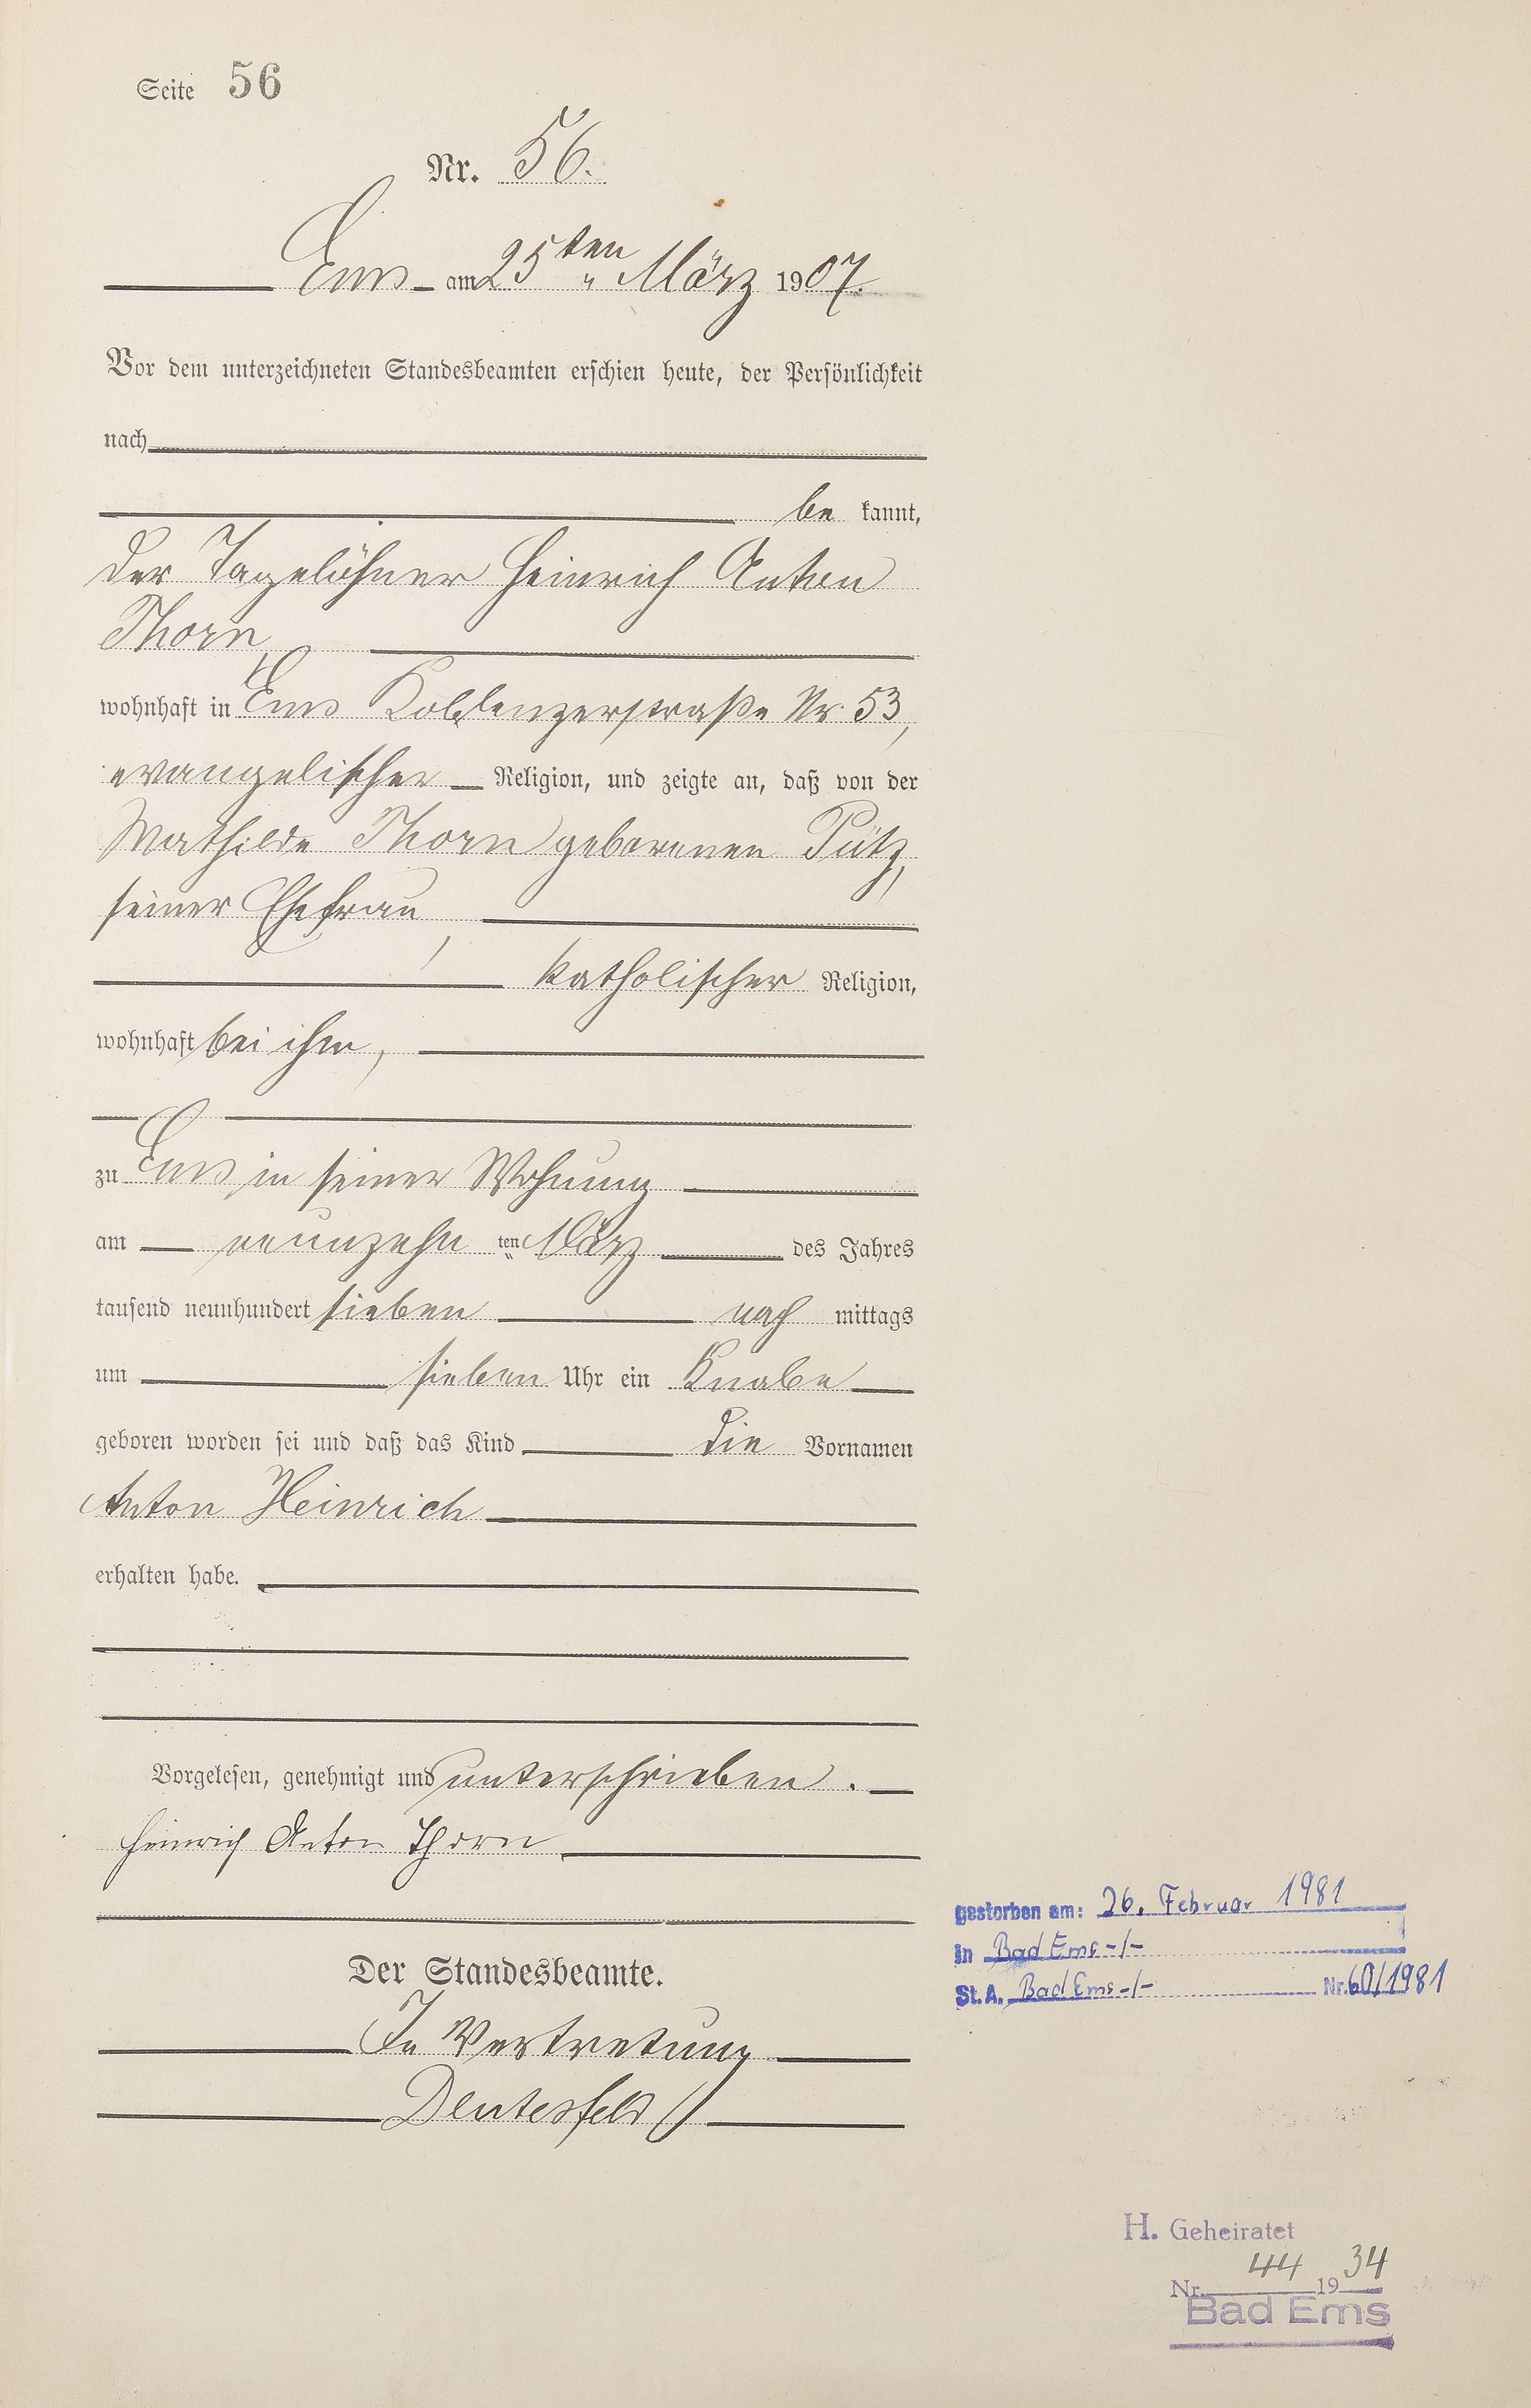 Seite 56
Nr. 56.
Ems am 25ten März 1907.
Vor dem unterzeichneten Standesbeamten erschien heute, der Persönlichkeit
nach
be kannt,
der Tagelöhner Heinrich Anton
Thorn,
wohnhaft in Ems Koblenzerstraße Nr. 53,
evangelischer Religion, und zeigte an, daß von der
Mathilde Thorn geborenen Pütz,
seiner Ehefrau,
katholischer Religion,
wohnhaft bei ihm,
zu Ems in seiner Wohnung
am neunzehn ten März des Jahres
tausend neunhundert sieben nach mittags
um sieben Uhr ein Knabe
geboren worden sei und daß das Kind die Vornamen
Anton Heinrich
erhalten habe.
Vorgelesen, genehmigt und unterschrieben.
Heinrich Anton Thorn
Der Standesbeamte.
In Vertretung
gestorben am: 26. Februar 1981
in Bad Ems -/-
St. A. Bad Ems -/- Nr. 60/1981
H. Geheiratet
Nr. 44 1934
Bad Ems